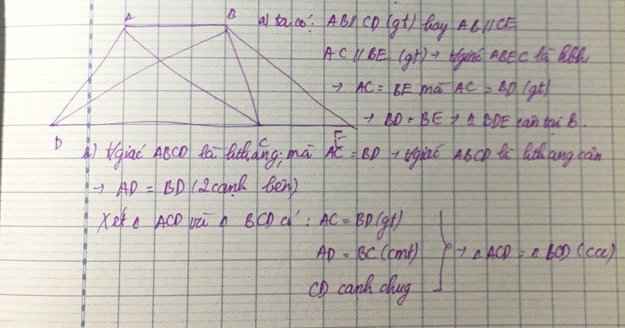 A B
D C E
a) ta có: AB // CD (gt) hay AB // CE
AC // BE (gt) → t/giác ABEC là hbh
→ AC = BE mà AC = BD (gt)
→ BD = BE → Δ BDE cân tại B.
b) t/giác ABCD là hthang; mà AC = BD → t/giác ABCD là hthang cân
→ AD = BD (2 cạnh bên)
Xét Δ ACD và Δ BCD có: AC = BD (gt)
AD = BC (cmt) → Δ ACD = Δ BCD (ccc)
CD cạnh chug